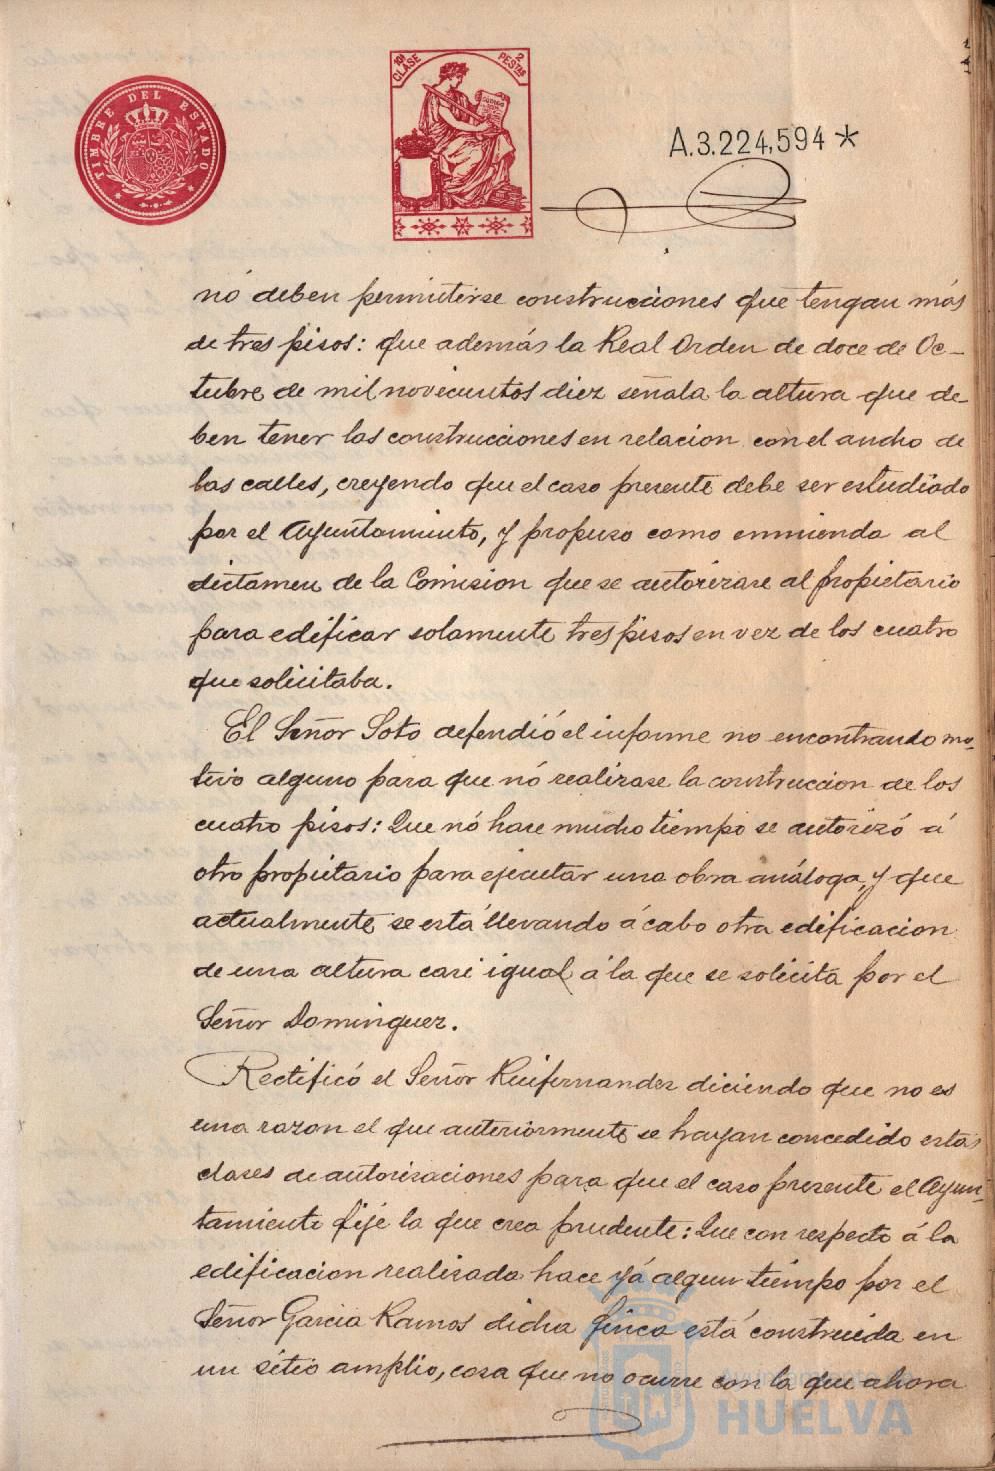 TIMBRE DEL ESTADO
10ª CLASE
2 PESTAS
A.3.224,594*
nó deben permitirse construcciones que tengan más
de tres pisos: que además la Real Orden de doce de Oc-
tubre de mil novecientos diez señala la altura que de-
ben tener las construcciones en relacion con el ancho de
las calles, creyendo que el caso presente debe ser estudiado
por el Ayuntamiento, y propuso como enmienda al
dictamen de la Comision que se autorizase al propietario
para edificar solamente tres pisos en vez de los cuatro
que solicitaba.
El Señor Soto defendió el informe no encontrando mo-
tivo alguno para que nó realizase la construccion de los
cuatro pisos: Que nó hace mucho tiempo se autorizó á
otro propietario para ejecutar una obra análoga, y que
actualmente se está llevando á cabo otra edificacion
de una altura casi igual á la que se solicita por el
Señor Dominguez.
Rectificó el Señor Ruifernandez diciendo que no es
una razon el que anteriormente se hayan concedido estas
clases de autorizaciones para que el caso presente el Ayun-
tamiento fije la que crea prudente: Que con respecto á la
edificacion realizada hace yá algun tiempo por el
Señor Garcia Ramos dicha finca está construida en
un sitio amplio, cosa que no ocurre con la que ahora
HUELVA